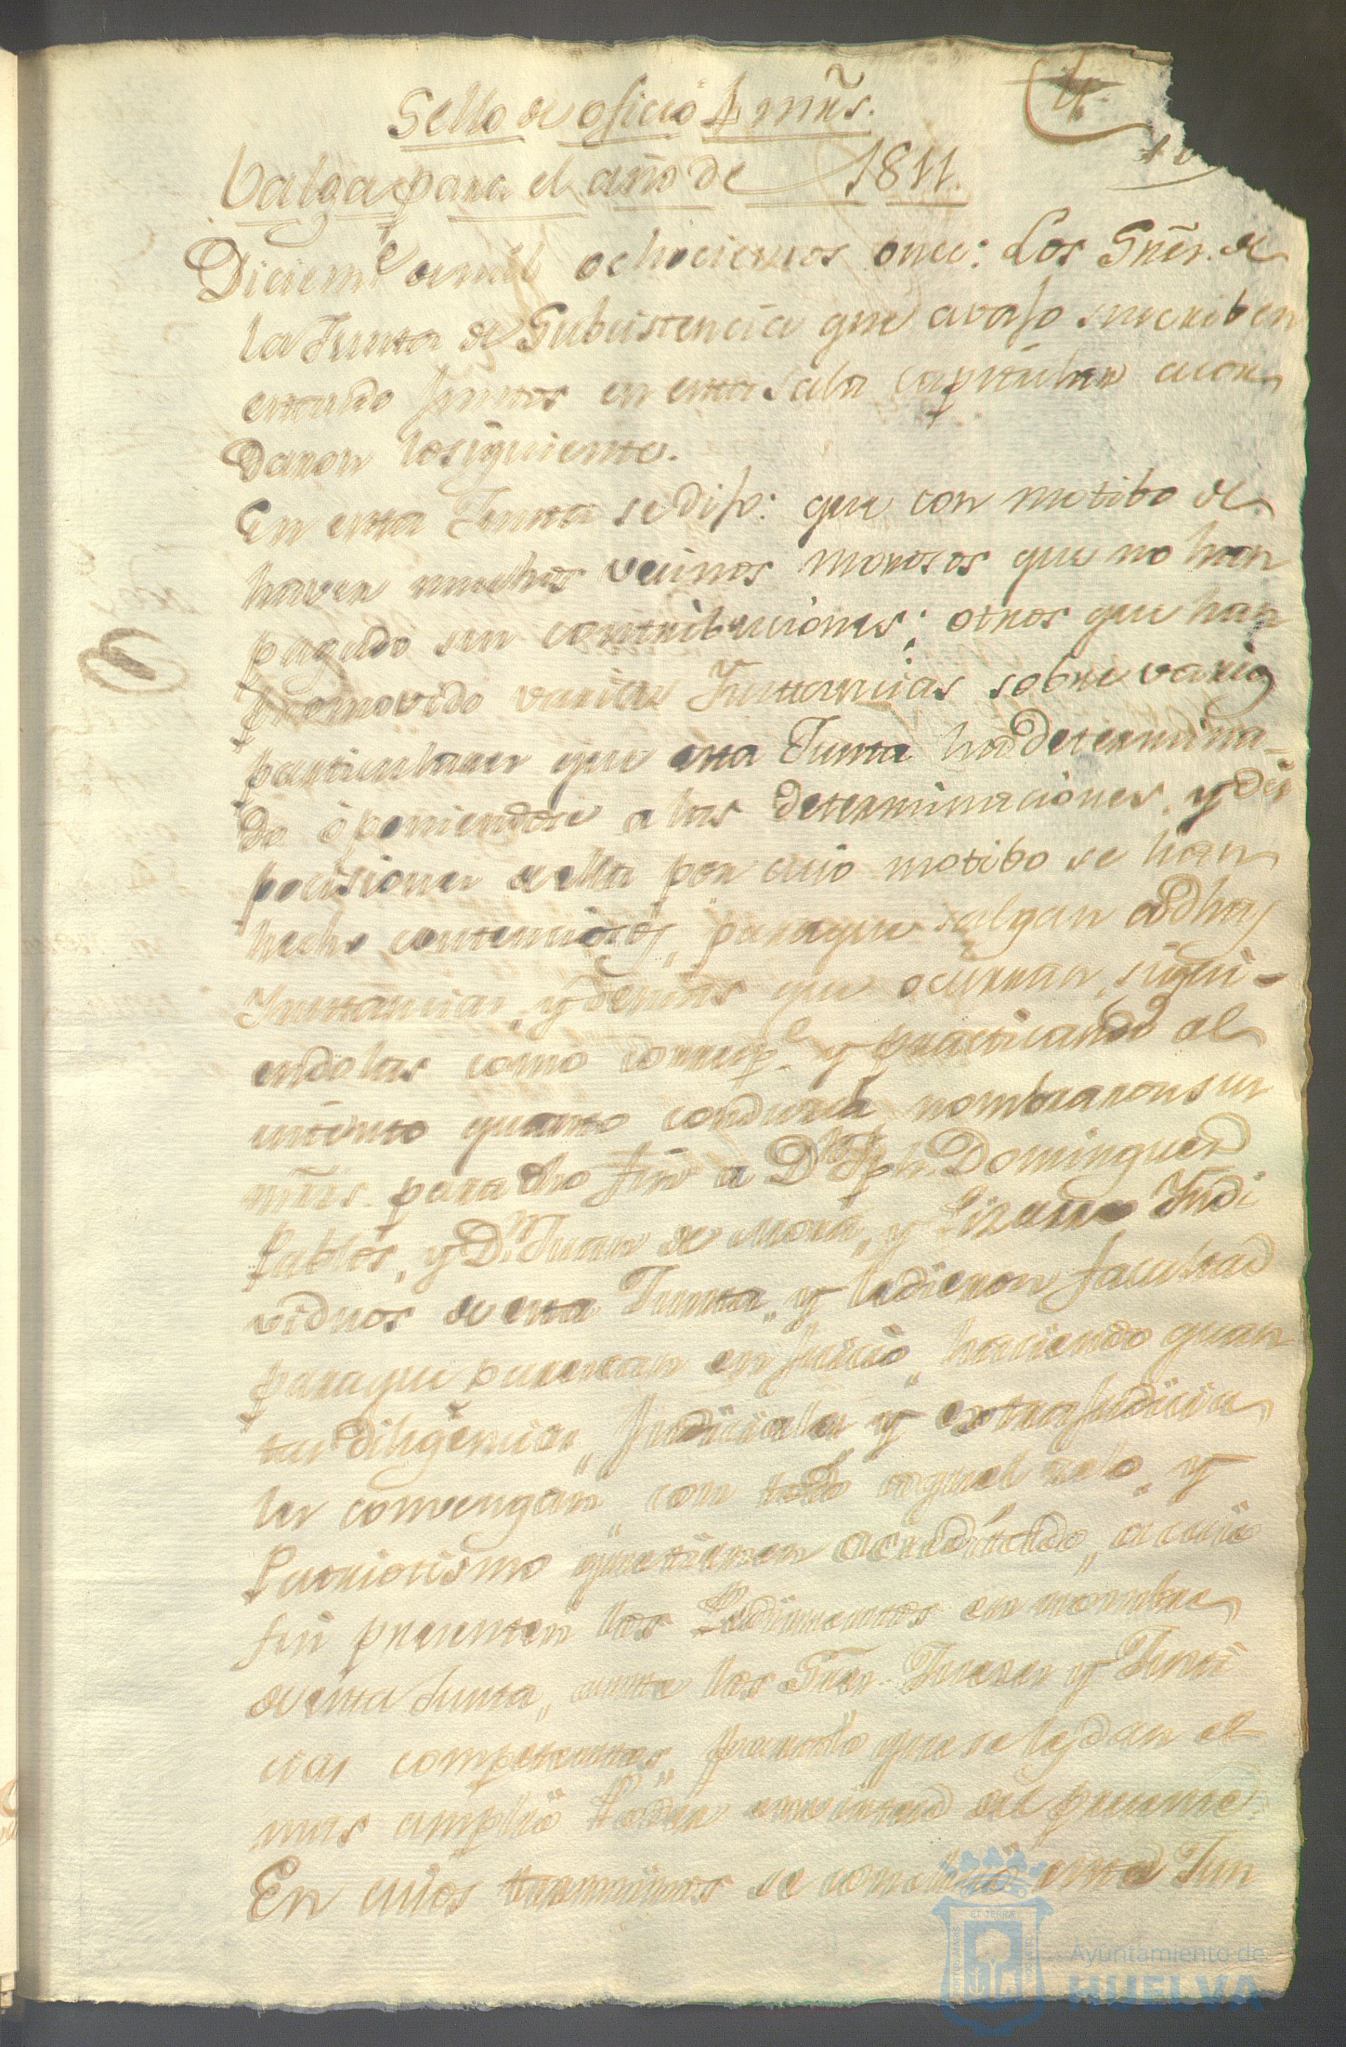 Sello de oficio 4 mrs.
4.
Valga para el año de 1811.
Diciem.e de mil ochocientos once: Los Sres. de
la Junta de Subcistencia que avajo suscriben
estando juntos en esta Sala capitular acor
daron lo siguiente.
En esta Junta se dijo: que con motibo de
haver muchos vecinos morosos que no han
pagado sus contribuciones; otros que han
promovido varias Ynstancias sobre varios
particulares que esta Junta ha determina-
do oponiendose a las determinaciones, y dis
pocisiones de ella por cuio motibo se han
hecho contenciosos, para que salgan a dhas
Ynstancias, y demas que ocurran, sigui-
endolas como corresp.e y practicando al
intento quanto conduzca nombraron sus
mrds. para dho fin a Dn. Jph. Dominguez
Pablos, y Dn. Juan de Mora, y Lizano Yndi
viduos de esta Junta, y le dieron facultad
para que parescan en juicio, haciendo quan
tas diligencias, judiciales y extrajudicia
les convengan, con todo aquel zelo, y
Patriotismo que tienen acreditado, a cuio
fin presenten los Pedimentos en nombre
de esta Junta, ante los Sres. Jueses y Justi
cias competentes, para lo que se les dan el
mas amplio Poder en virtud del presente
En cuios terminos se concluió esta Jun
Ayuntamiento de
HUELVA